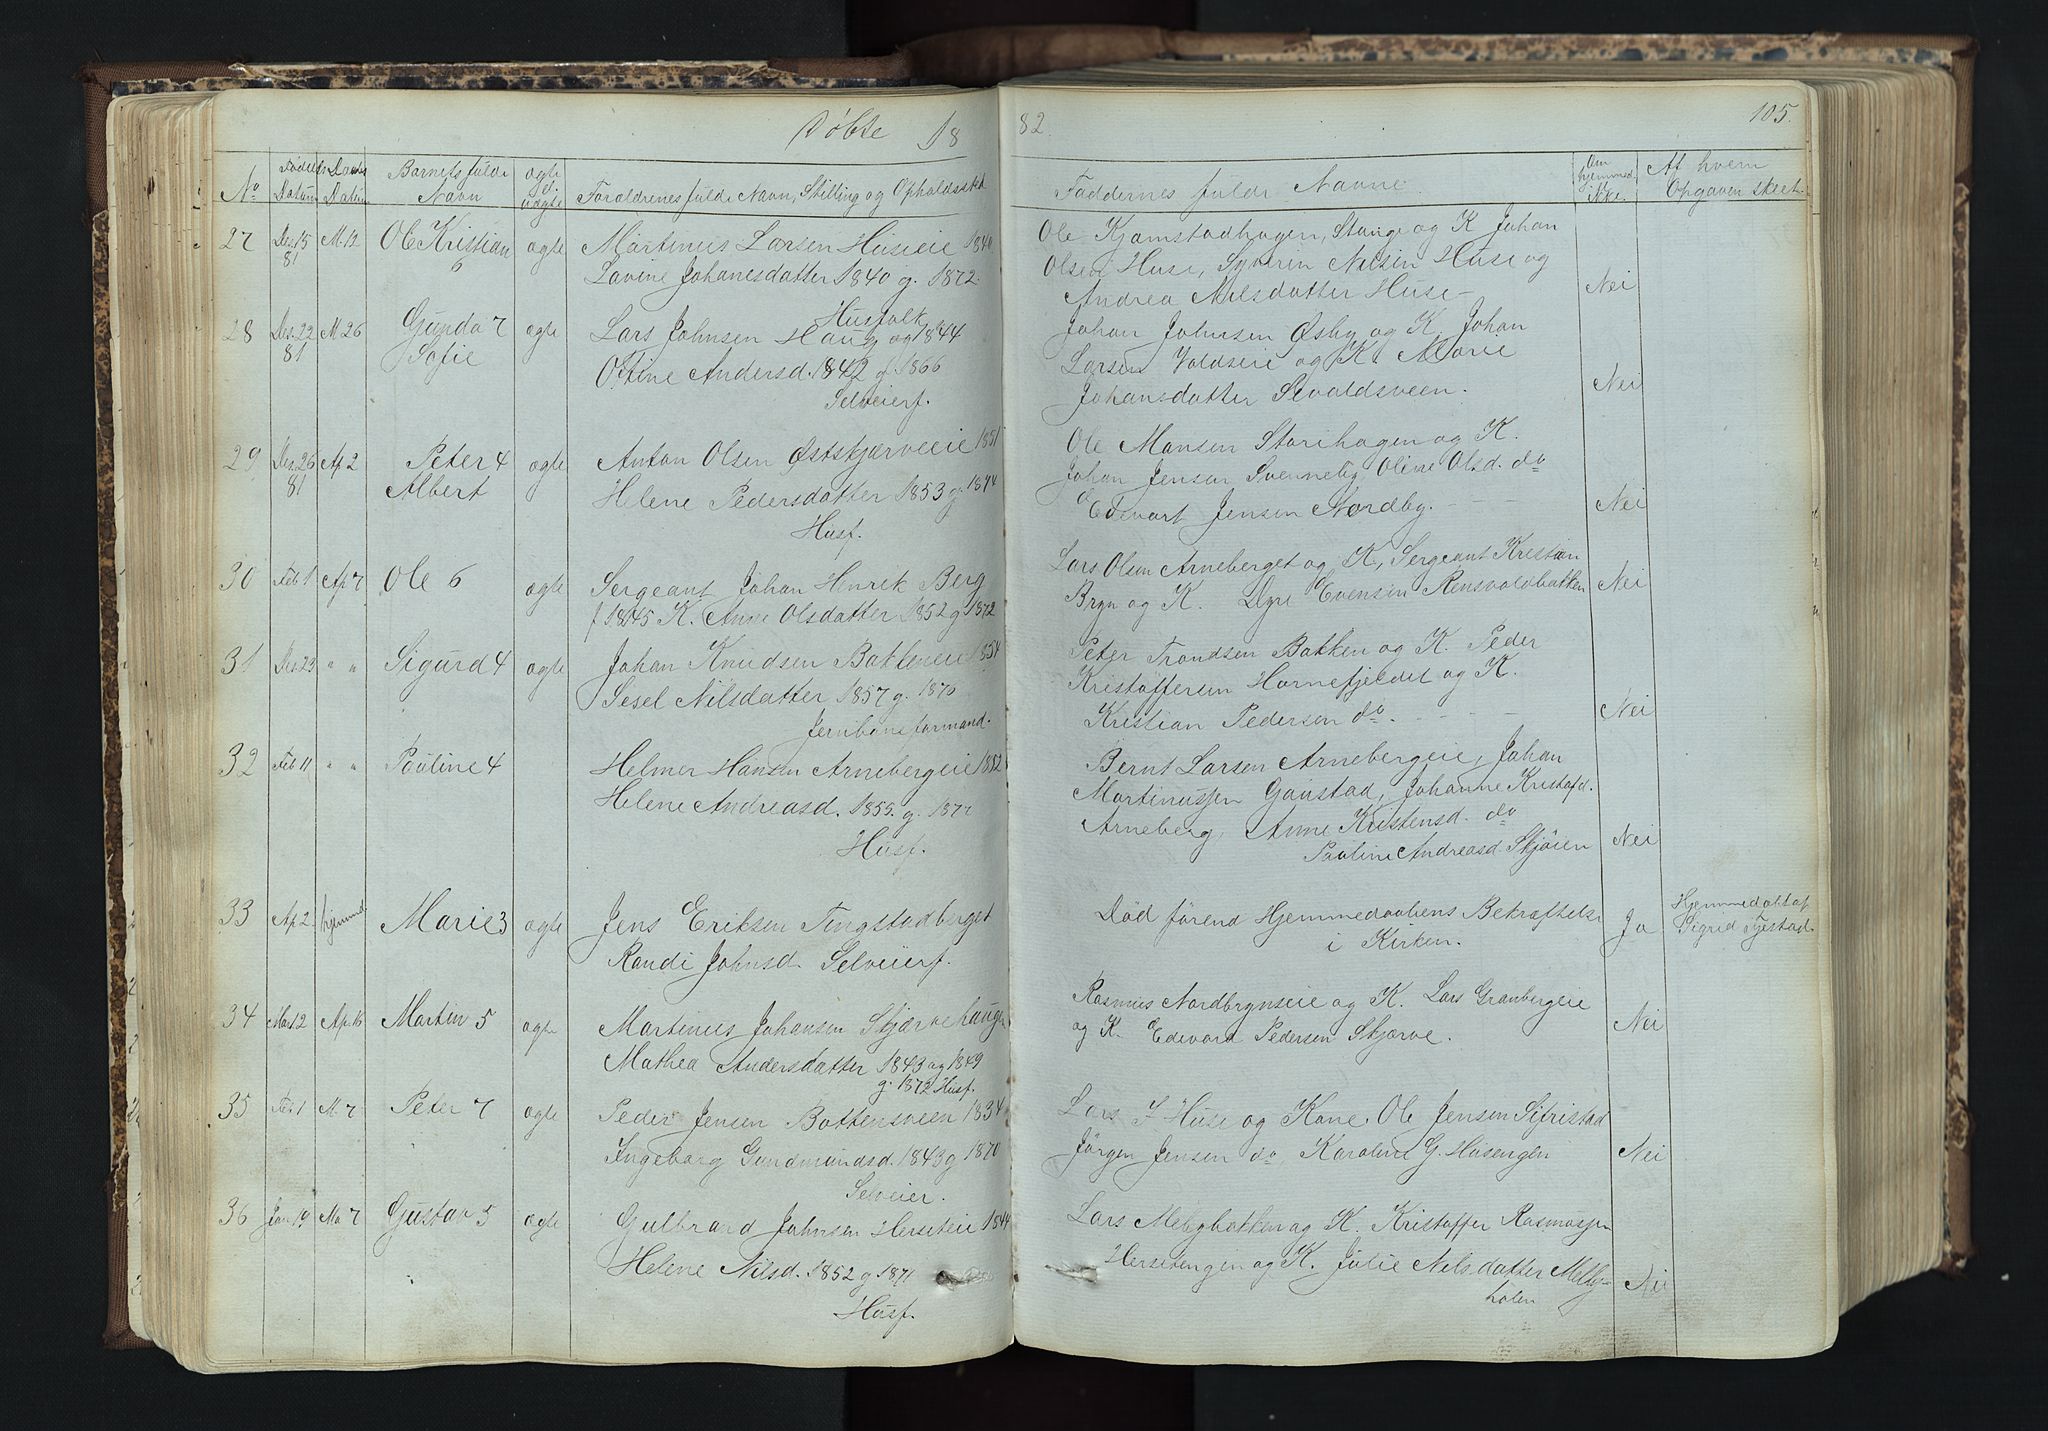 Døbte 18
82. 105.
No Fødsels Datum Daabs Datum Barnets fulde Navn ægte el. uægte Forældrenes fulde Navn, Stilling og Opholdssted
Faddernes fulde Navne. Om hjemmed. el. ikke. Af hvem Opgaven skeet.
27 Des. 15 81 M. 12 Ole Kristian 6 ægte Martinus Larsen Huseie 1840
Lovine Johanesdatter 1840 g. 1872.
Husfolk
Ole Kjamstadhagen, Stange og K. Johan
Olsen Huse, Syverin Nilsen Huse og
Andrea Nilsdatter Huse – Nei
28 Des. 22 81 M 26 Gunda 7 Sofie ægte Lars Johnsen Haug og 1844
Otine Andersd. 1842 g. 1866
Selveierf.
Johan Johnsen Østby og K. Johan
Larsen Voldseie og K. Marie
Johansdatter Sevaldsveen. Nei
29 Des. 26 81 Ap 2 Peter 4 Albert ægte Anton Olsen Østskjærveeie 1851
Helene Pedersdatter 1853 g. 1874
Husf.
Ole Monsen Storihagen og K.
Johan Jensen Svenneby, Oline Olsd. do
Edevart Jensen Nordby. – – Nei
30 Feb 1 Ap 7 Ole 6 ægte Sergeant Johan Henrik Berg
f 1845 K. Anne Olsdatter 1852 g. 1872
Lars Olsen Arneberget og K, Sergeant Kristian
Bryn og K. Dyre Evensen Rensvoldbakken Nei
31 Des. 23 " " Sigurd 4 ægte Johan Knudsen Bakkeneie 1854
Sesel Nilsdatter 1857 g. 1876
Jernbaneformand.
Peter Trondsen Bakken og K. Peder
Kristoffersen Hornefjeldet og K.
Kristian Pedersen do. – – – – Nei
32 Feb 11 " " Pauline 4 Helmer Hansen Arnebergeie 1852
Helene Andreasd. 1855. g. 1877
Husf.
Bernt Larsen Arnebergeie, Johan
Martinussen Gaustad, Johanne Kristofd.
Arneberg, Anne Kristensd. do
Pauline Andreasd. Skjøien Nei
33 Ap. 2 hjemmd Marie 3 ægte Jens Eriksen Tingstadberget
Randi Johnsd. Selveierf.
Død førend Hjemmedaabens Bekræftelse
i Kirken. Ja Hjemmedøbt af
Sigrid Tjestad.
34 Mar 12 Ap. 16 Martin 5 ægte Martinus Johansen Skjærvehaugen
Mathea Andersdatter 1843 og 1849
g. 1872 Husf.
Rasmus Nordbrynseie og K. Lars Granbergeie
og K. Edevard Pedersen Skjærve. Nei
35 Feb 1 M. 7 Peter 7 ægte Peder Jensen Bottensveen 1834
Ingeborg Gundmundsd. 1843 g 1870
Selveier.
Lars J Huse og Kone. Ole Jensen Sifristad
Jörgen Jensen do, Karoline G. Husengen Nei
36 Jan 19 Ma 7 Gustav 5 ægte Gulbrand Johnsen Herseteie 1844
Helene Nilsd. 1852 g 1871
Husf.
Lars Melbybakken og K. Kristoffer Rasmussen
Hersetengen og K. Julie Nilsdatter Melby-
holen Nei